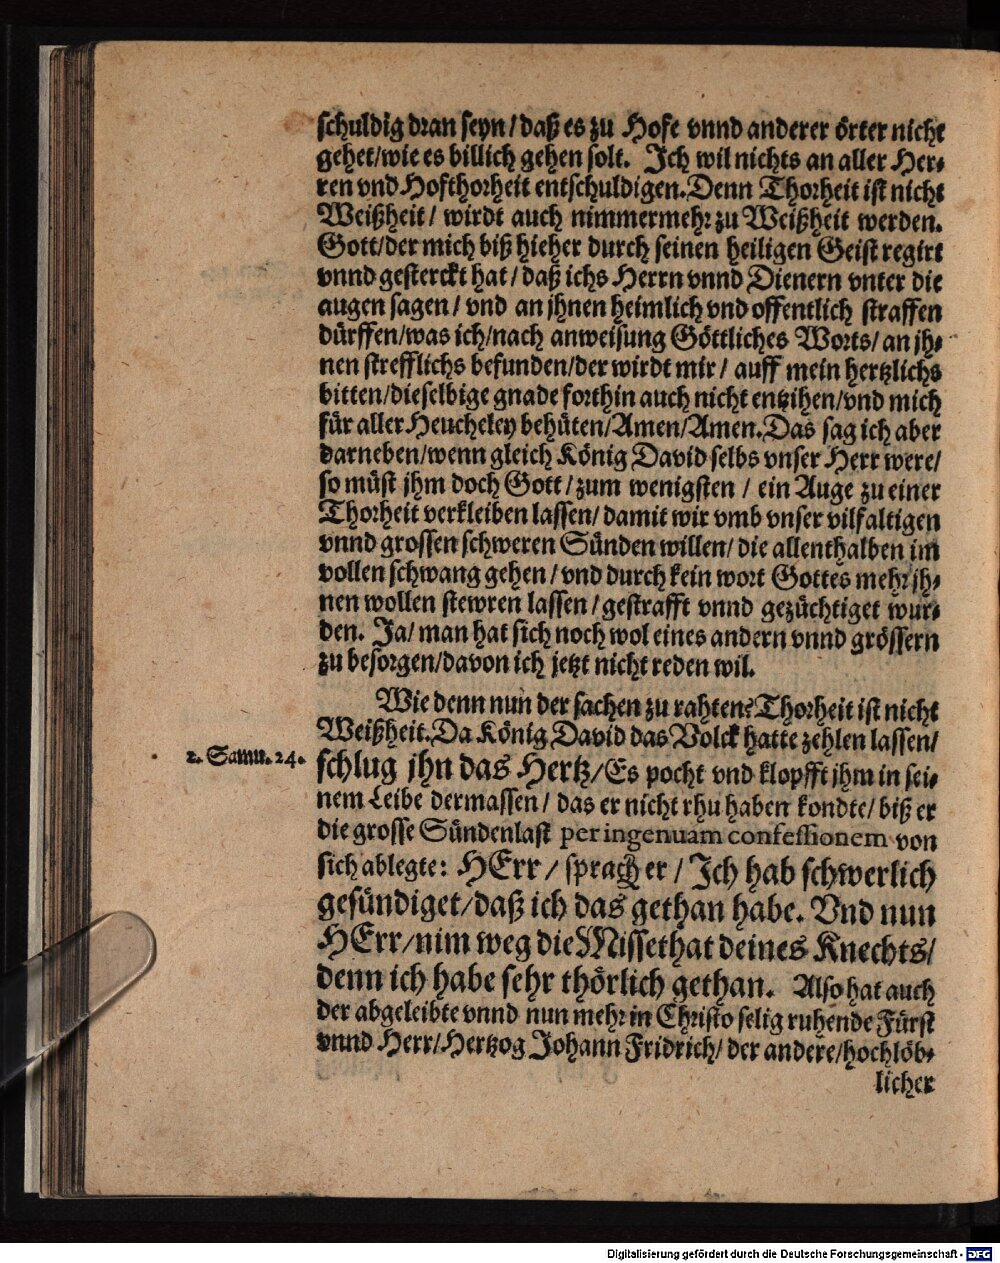 schuldig dran seyn / daß es zu Hofe vnnd anderer örter nicht
gehet/wie es billich gehen solt. Ich wil nichts an aller Her-
ren vnd Hofthorheit entschuldigen. Denn Thorheit ist nicht
Weißheit / wirdt auch nimmermehr zu Weißheit werden.
Gott/der mich biß hieher durch seinen heiligen Geist regirt
vnnd gesterckt hat / daß ichs Herrn vnnd Dienern vnter die
augen sagen / vnd an jhnen heimlich vnd offentlich straffen
dürffen/was ich/nach anweisung Göttliches Worts/ an jh-
nen strefflichs befunden/der wirdt mir / auff mein hertzlichs
bitten/dieselbige gnade forthin auch nicht entzihen/vnd mich
für aller Heucheley behüten/Amen/Amen. Das sag ich aber
darneben/wenn gleich König David selbs vnser Herr were/
so müst jhm doch Gott / zum wenigsten / ein Auge zu einer
Thorheit verkleiben lassen/ damit wir vmb vnser vilfaltigen
vnnd grossen schweren Sünden willen/ die allenthalben im
vollen schwang gehen / vnd durch kein wort Gottes mehr jh-
nen wollen stewren lassen / gestrafft vnnd gezüchtiget wur-
den. Ja/ man hat sich noch wol eines andern vnnd grössern
zu besorgen/davon ich jetzt nicht reden wil.
Wie denn nun der sachen zu rahten? Thorheit ist nicht
Weißheit. Da König David das Volck hatte zehlen lassen/
2. Samu. 24.
schlug jhn das Hertz/Es pocht vnd klopfft jhm in sei-
nem Leibe dermassen / das er nicht rhu haben kondte/ biß er
die grosse Sündenlast per ingenuam confessionem von
sich ablegte: HErr / sprach er / Ich hab schwerlich
gesündiget/daß ich das gethan habe. Vnd nun
HErr/nim weg die Missethat deines Knechts/
denn ich habe sehr thörlich gethan. Also hat auch
der abgeleibte vnnd nun mehr in Christo selig ruhende Fürst
vnnd Herr/Hertzog Johann Fridrich/ der andere/hochlöb-
licher
Digitalisierung gefördert durch die Deutsche Forschungsgemeinschaft - DFG